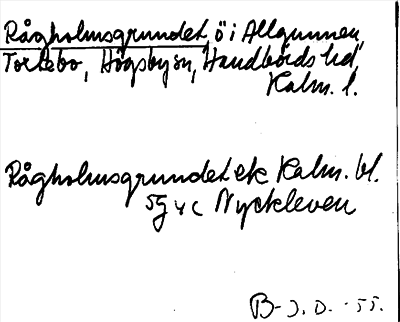 Rågholmsgrundet, ö i Allgunnen,
Torlebo, Högsby sn, Handbörds hd,
Kalm. l.
Rågholmsgrundet ek Kalm. bl.
5g 4c Nyckleven
B-J. D. -55.